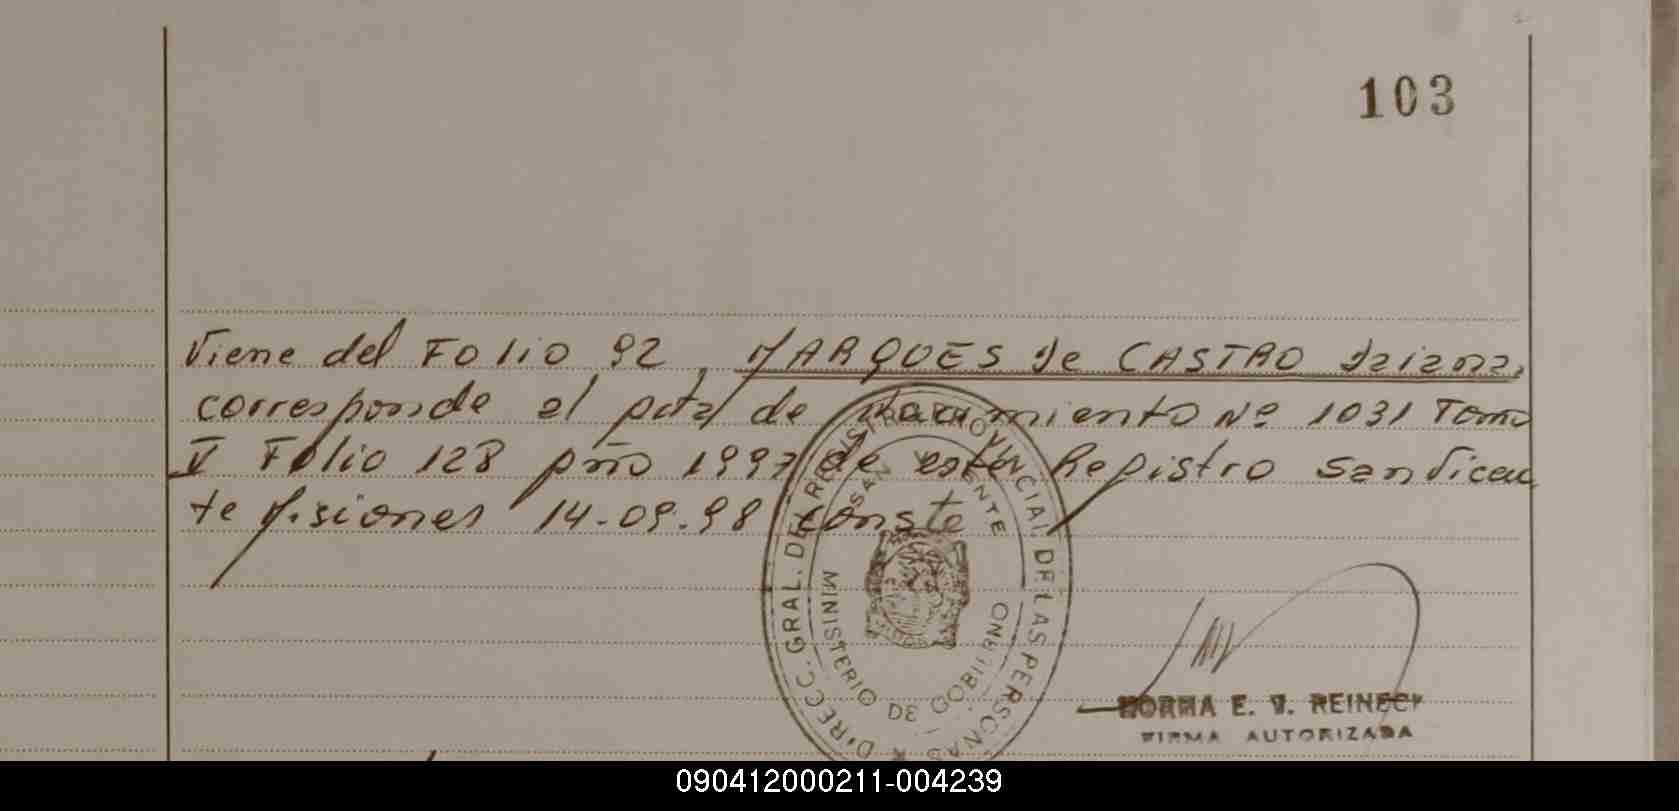 103
Viene del Folio 92, MARQUES de CASTRO
corresponde al acta de Nacimiento Nº 1031 Tomo
V Folio 128 año 1997 de este Registro San Vicen
te Misiones 14-09-98 conste
DIRECC. GRAL. DEL REGISTRO PROVINCIAL DE LAS PERSONAS
SAN VICENTE
MINISTERIO DE GOBIERNO
NORMA E. V.
FIRMA AUTORIZADA
090412000211-004239